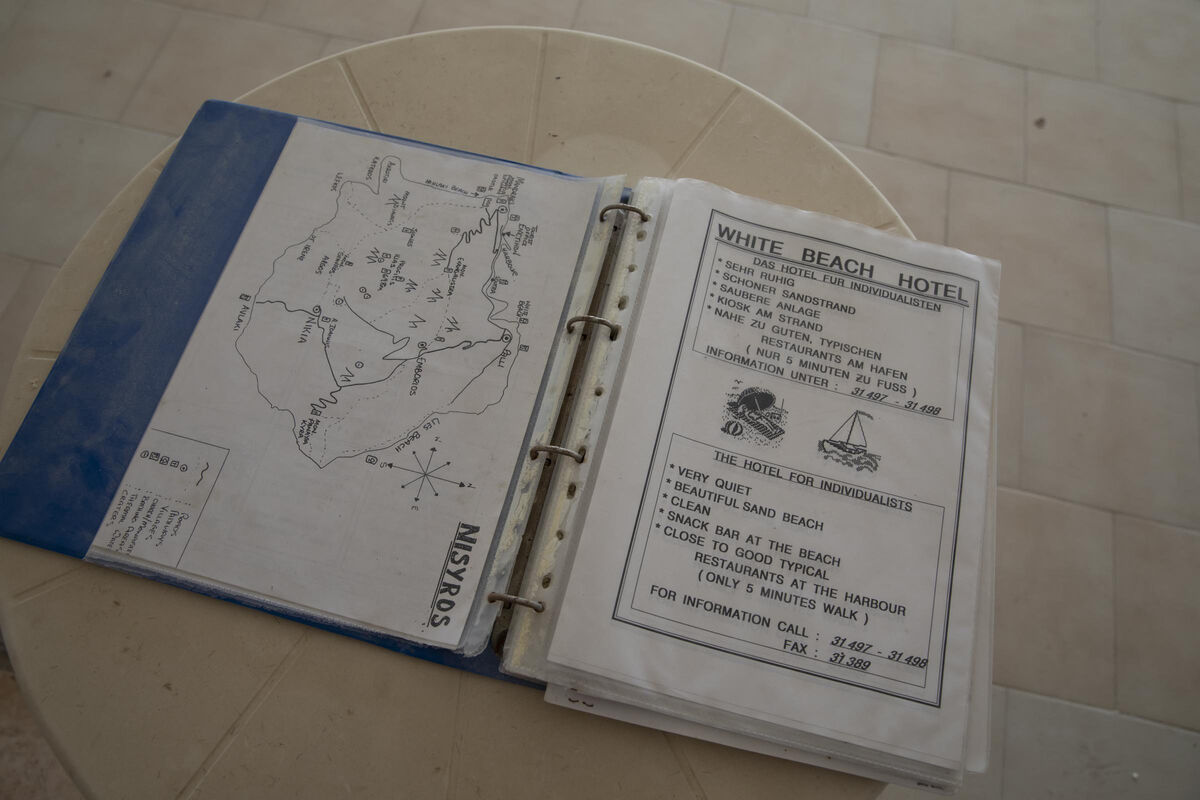 NISYROS
MANDRAKI
LOUTRA
WHITE
BEACH
PALI
EMBORIOS
LIES BEACH
NIKIA
AVLAKI
ARGOS
ST. IRENE
ROADS
PATHWAYS
VILLAGES
CRATERS
N
E
S
WHITE BEACH HOTEL
DAS HOTEL FUR INDIVIDUALISTEN
* SEHR RUHIG
* SCHONER SANDSTRAND
* SAUBERE ANLAGE
* KIOSK AM STRAND
* NAHE ZU GUTEN, TYPISCHEN
RESTAURANTS AM HAFEN
( NUR 5 MINUTEN ZU FUSS )
INFORMATION UNTER : 31497 - 31498
THE HOTEL FOR INDIVIDUALISTS
* VERY QUIET
* BEAUTIFUL SAND BEACH
* CLEAN
* SNACK BAR AT THE BEACH
* CLOSE TO GOOD TYPICAL
RESTAURANTS AT THE HARBOUR
( ONLY 5 MINUTES WALK )
FOR INFORMATION CALL : 31497 - 31498
FAX : 31389